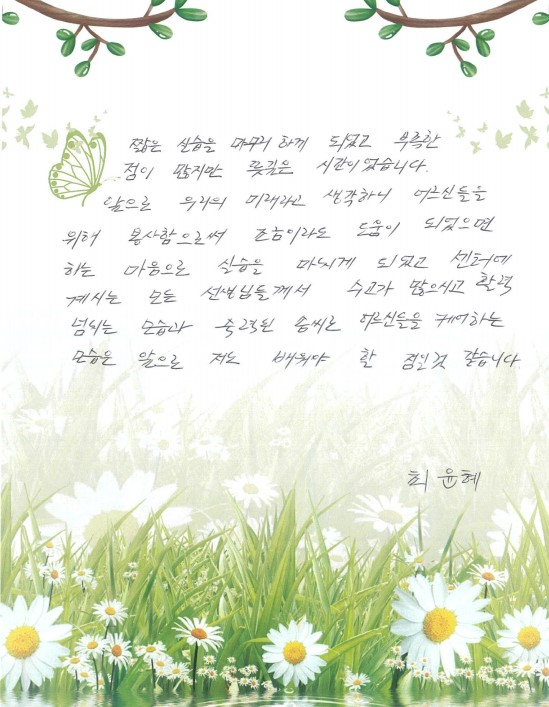 짧은 실습을 마무리 하게 되었고 부족한
점이 많지만 뜻깊은 시간이었습니다.
앞으로 우리의 미래라고 생각하니 어르신들을
위해 봉사함으로써 조금이라도 도움이 되었으면
하는 마음으로 실습을 마치게 되었고 센터에
계시는 모든 선생님들께서 수고가 많으시고 활력
넘치는 모습과 숙련된 솜씨로 어르신들을 케어하는
모습은 앞으로 저도 배워야 할 점인것 같습니다.
최윤혜